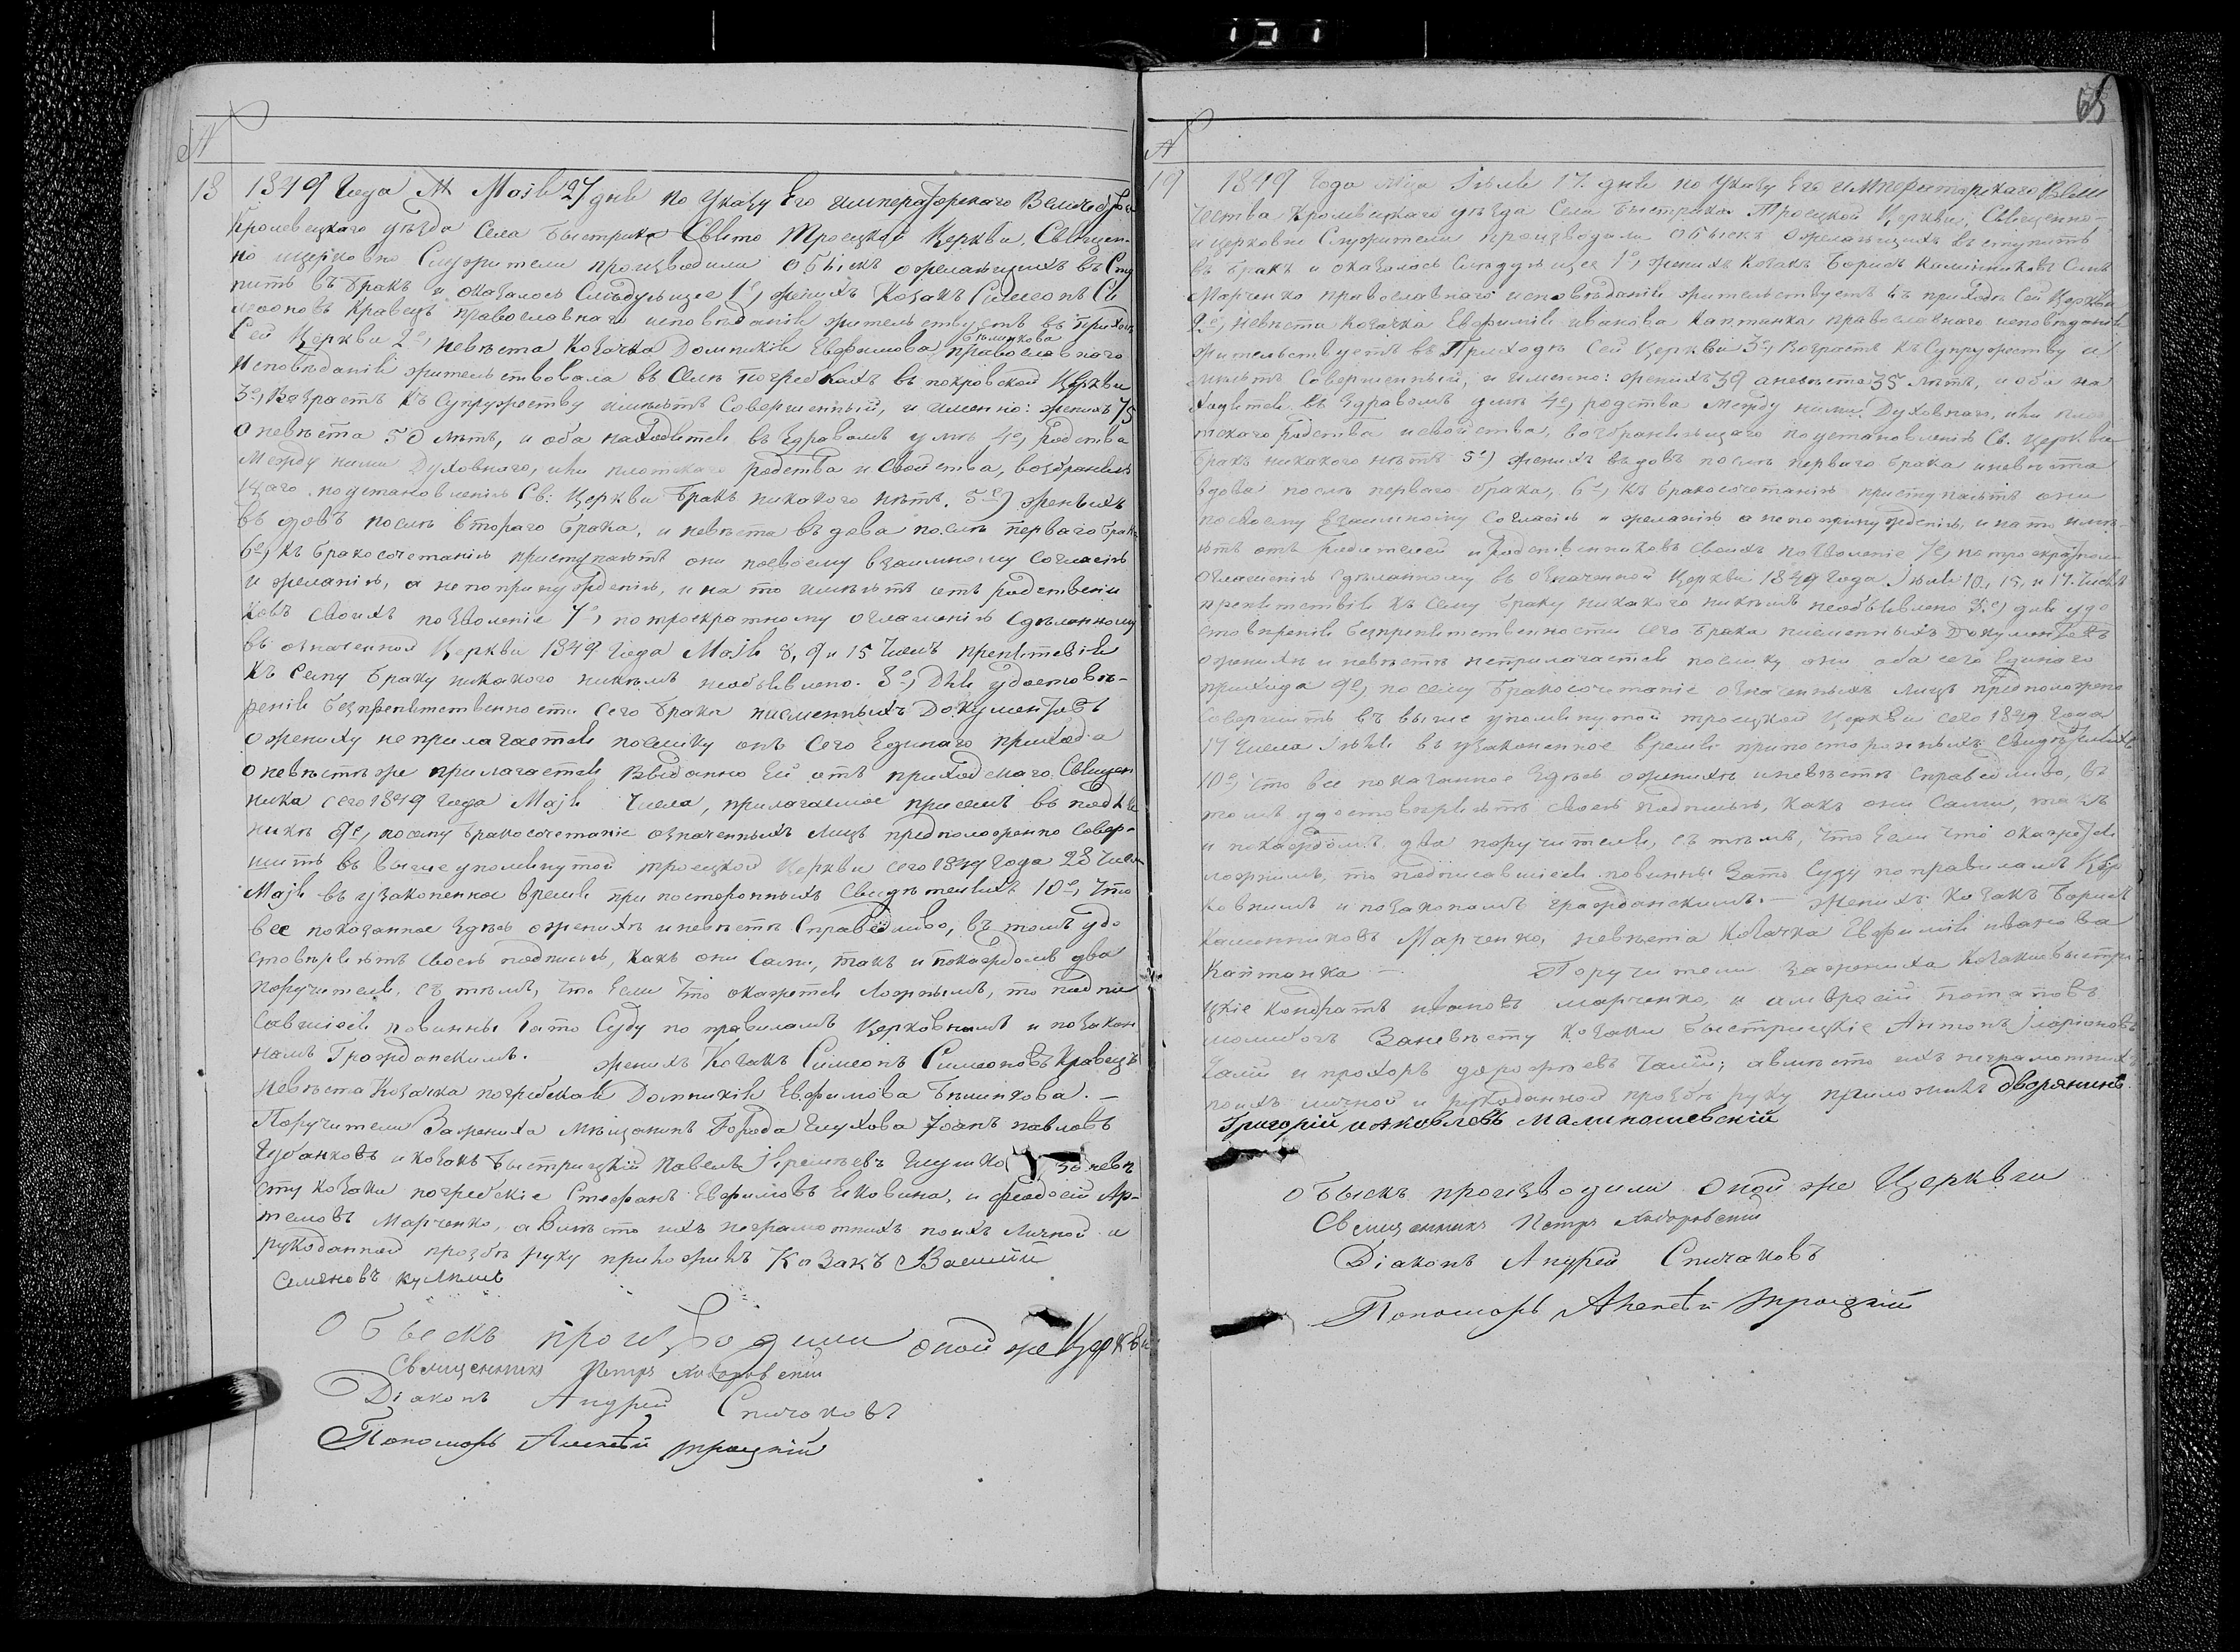 65
№
18 1849 Года М Маія 27 дня по Указу Его Императорскаго Величества
Кролевецкаго уѣзда Села Быстрика Свято Троецкой Церкви, Священ-
но ицерковно Служители производили обыскъ ожелающихъ въ Сту
пить въ бракъ и оказалось Слѣдующее 1е, женихъ Козакъ Симеонъ Си
меоновъ Кравецъ православнаго исповѣданія жительствуетъ въ приходѣ
Сей Церкви 2е, невѣста Козачка Домникія Евфимова Бѣлинкова православнаго
Исповѣданія жительствовала въ Селѣ Погребкахъ въ покровской Церкви
3е, Возрастъ Къ Супружеству имѣютъ Совершенный, и именно: женихъ 75
а невѣста 50 лѣтъ, и оба находятся въ здравомъ умѣ 4е, Родства
Между ними Духовнаго, или плотскаго родства и Свойства, возбраняю
щаго поустановленію Св: Церкви бракъ никакого нѣтъ. 5е) женихъ
въ довъ послѣ втораго брака, и невѣста въ дова послѣ перваго брака
6е, къ бракосочетанію приступаютъ они посвоему взаимному Согласію
и желанію, а непопринужденію, и на то имѣютъ отъ родственни
ковъ своихъ позволеніе 7е, потроекратному оглашенію сдѣланному
въ означенной Церкви 1849 Года Маія 8, 9 и 15 Числъ препятствія
къ Сему браку никакого никѣмъ необъявлено. 8е, Для удостовѣ-
ренія безпрепятственности сего брака письменныхъ Документовъ
ожениху неприлагается поелику онъ Сего Единаго прихода
оневѣстѣже прилагается Выданно Ей отъ приходскаго Священ
ника сего 1849 Года Маія Числа, прилагаемое присемъ въ подли
никѣ 9е, посему бракосочетаніе означенныхъ Лицъ предположенно Совер-
шить въ вышеупомянутой троецкой Церкви сего 1849 Года 28 Числа
Маія въ узаконенное время при постороннихъ Свидѣтеляхъ 10е, Что
все показанное здѣсь ожениxѣ иневѣстѣ Справедливо, въ томъ удо
стовѣряютъ своею подписью, какъ они Сами, такъ и покаждомъ два
поручителя, съ тѣмъ, что Если Что окажется Ложнымъ, то подпи
савшіеся повинны Зато Суду по правиламъ Церковнымъ и позакон
намъ Гражданскимъ. женихъ Козакъ Симеонъ Симеоновъ Кравецъ
невѣста Козачка погребская Домникія Евфимова Бѣлинкова. —
Поручители Зажениха Мѣщанинъ Города Глухова Іоанъ павловъ
икозакъ быстрицкій Павелъ заневѣ
сту козаки погребскіе Стефанъ Евфимовъ и феодосій Ар-
темовъ Марченко, авмѣсто ихъ неграмотныхъ поихъ Личной и
рукоданной прозбѣ руку приложилъ Козакъ Василій
Семеновъ
Обыскъ производили оной же Церкви
Священникъ Петръ
Діаконъ Андрей Спичаковъ
Пономарь Алексѣй троицкій
№
19 1849 Года Мца Іюля 17. дня по Указу Его Императорскаго Вели
чества Кролевецкаго уѣзда Села Быстрика Троецкой Церкви, Священно-
и церковно Служители производили обыскъ ожелающихъ вступить
въ бракъ и оказалось Слѣдующее 1е, женихъ Козакъ Борисъ Сынъ
Марченко православнаго исповѣданія жительствуетъ въ приходѣ Сей Церкви
2е, невѣста Козачка Евфимія иванова Каптанка православнаго исповѣданія
жительствуетъ въ Приходѣ Сей Церкви 3е, Возрастъ къ Супружеству и
мѣютъ Совершенный, и именно: женихъ 39 аневѣста 35 лѣтъ, и оба на
ходятся въ здравомъ умѣ 4е, родства между ними Духовнаго, или плот
скаго родства и свойства, возбраняющаго поустановленію Св. Церкви
бракъ никакого нѣтъ 5е) женихъ въ довъ послѣ перваго брака иневѣста
вдова послѣ перваго брака, 6е, къ бракосочетанію приступаютъ они
посвоему взаимному Согласію и желанію а непопринужденію, и на то имѣ-
ютъ отъ родителей и родственниковъ своихъ позволеніе 7е, потроекратному
оглашенію Сдѣланному въ означенной Церкви 1849 Года Іюля 10, 15, и 17. Числъ
препятствія къ Сему браку никакого никѣмъ необъявлено 8е, для удо
стовѣренія безпрепятственности сего брака письменныхъ Документовъ
оженихѣ и невѣстѣ неприлагается поелику они оба сего Единаго
прихода 9е, по сему бракосочетаніе означенныхъ Лицъ предположено
Совершить въ выше упомянутой троецкой Церкви сего 1849 Года
17 Числа Іюля въ узаконенное время припостороннихъ свидѣтеляхъ
10е, Что все показанное здѣсь оженихѣ иневѣстѣ Справедливо, въ
томъ удостовѣряютъ своею подписью, какъ они Сами, такъ
и покаждомъ два поручителя, съ тѣмъ, что Если что окажется
ложнымъ, то подписавшіеся повинны Зато Суду поправиламъ Цер
ковнымъ и позаконамъ гражданскимъ. — Женихъ Козакъ Борисъ
Марченко, невѣста Козачка Евфимія иванова
Каптанка — Поручители зажениха Козаки быстри
цкіе Кондратъ ивановъ марченко, и амвросій потаповъ
Заневѣсту козаки быстрицкіе Антонъ Іларіоновъ
и прохоръ авмѣсто ихъ неграмотныхъ
поихъ личной и рукоданной прозбѣ руку приложилъ дворянинъ
Григорій иаковлевъ Малиношевскій
обыскъ производили оной же Церкви
Священникъ Петръ
Діаконъ Андрей Спичаковъ
Пономарь Алексѣй троицкій